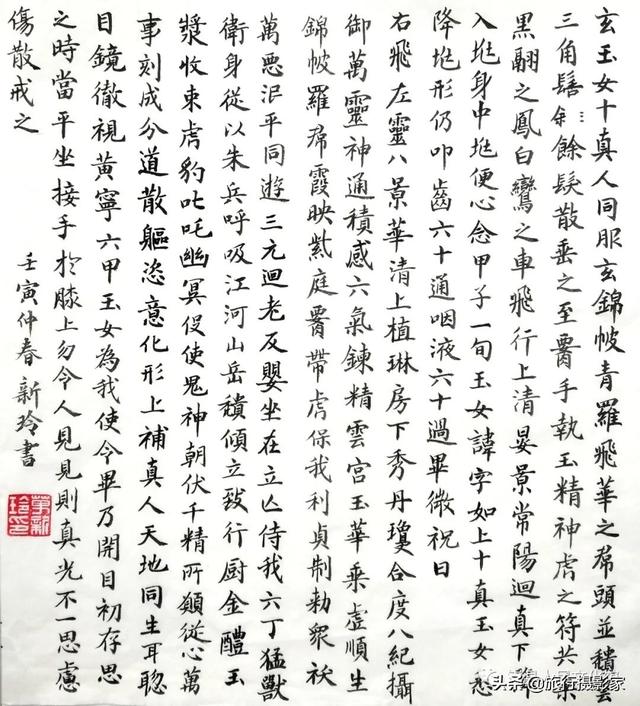 玄玉女十真人同服玄錦帔青羅飛華之帬頭並穨雲
三角髻余餘髮散垂之至𦝫手執玉精神虎之符共乗
黑翮之鳳白鸞之車飛行上清晏景常陽迴真下降
入𡉏身中𡉏便心念甲子一旬玉女諱字如上十真玉女悉
降𡉏形仍叩齒六十通咽液六十過畢微祝曰
右飛左靈八景華清上植琳房下秀丹瓊合度八紀攝
御萬靈神通積感六氣鍊精雲宮玉華乗虛順生
錦帔羅帬霞映紫庭𦝫帶虎保我利貞制勑衆祅
萬惡泯平同遊三元迴老反嬰坐在立亡侍我六丁猛獸
衛身從以朱兵呼吸江河山岳穨傾立致行厨金醴玉
漿收束虎豹叱吒幽冥役使鬼神朝伏千精所願從心萬
事刻成分道散軀恣意化形上補真人天地同生耳聡
目鏡徹視黄寧六甲玉女為我使令畢乃開目初存思
之時當平坐接手於膝上勿令人見見則真光不一思慮
傷散戒之
壬寅仲春新玲書
头条@旅行摄影家